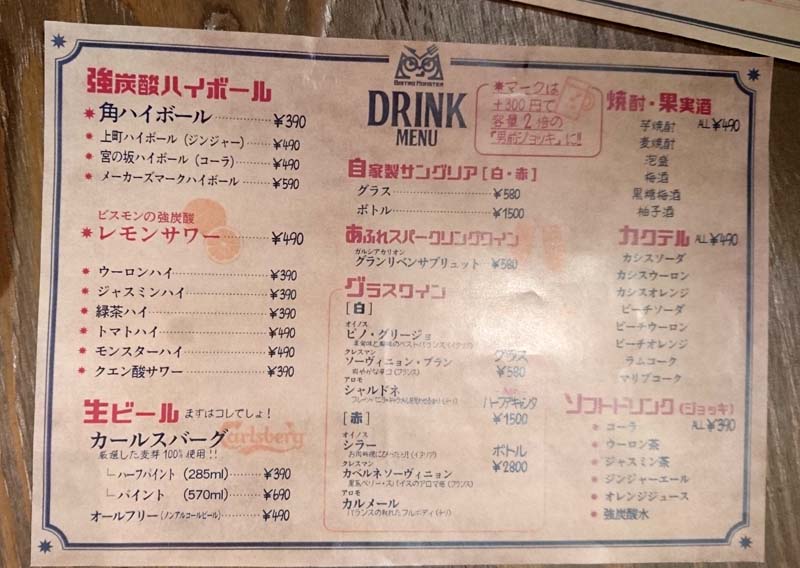 BISTRO MONSTER
DRINK
MENU
*マークは
+300円で
容量2倍の
『男前ジョッキ』に!!
強炭酸ハイボール
* 角ハイボール ¥390
* 上町ハイボール (ジンジャー) ¥490
* 宮の坂ハイボール (コーラ) ¥490
* メーカーズマークハイボール ¥590
ビスモンの強炭酸
* レモンサワー ¥490
* ウーロンハイ ¥390
* ジャスミンハイ ¥390
* 緑茶ハイ ¥390
* トマトハイ ¥490
* モンスターハイ ¥490
* クエン酸サワー ¥390
生ビール まずはコレでしょ!
カールスバーグ
Carlsberg
厳選した麦芽100%使用!!
└ハーフパイント (285ml) ¥390
└パイント (570ml) ¥690
オールフリー (ノンアルコールビール) ¥490
自家製サングリア [白・赤]
グラス ¥580
ボトル ¥1500
あふれスパークリングワイン
ガルシアカリオン
グランリベンサブリュット ¥580
グラスワイン
[白]
オイノス
ピノ・グリージョ
クレスマン
ソーヴィニョン・ブラン
爽やかな辛口 (フランス)
アロモ
シャルドネ
[赤]
オイノス
シラー
お肉料理にぴったり! (イタリア)
クレスマン
カベルネソーヴィニョン
黒系ベリー・スパイスのアロマ感 (フランス)
アロモ
カルメール
バランスの利れたフルボディ (チリ)
グラス
¥580
ハーフデキャンタ
¥1500
ボトル
¥2800
焼酎・果実酒 ALL ¥490
芋焼酎
麦焼酎
泡盛
梅酒
黒糖梅酒
柚子酒
カクテル ALL ¥490
カシスソーダ
カシスウーロン
カシスオレンジ
ピーチソーダ
ピーチウーロン
ピーチオレンジ
ラムコーク
マリブコーク
ソフトドリンク (ジョッキ)
ALL ¥390
* コーラ
* ウーロン茶
* ジャスミン茶
* ジンジャーエール
* オレンジジュース
* 強炭酸水